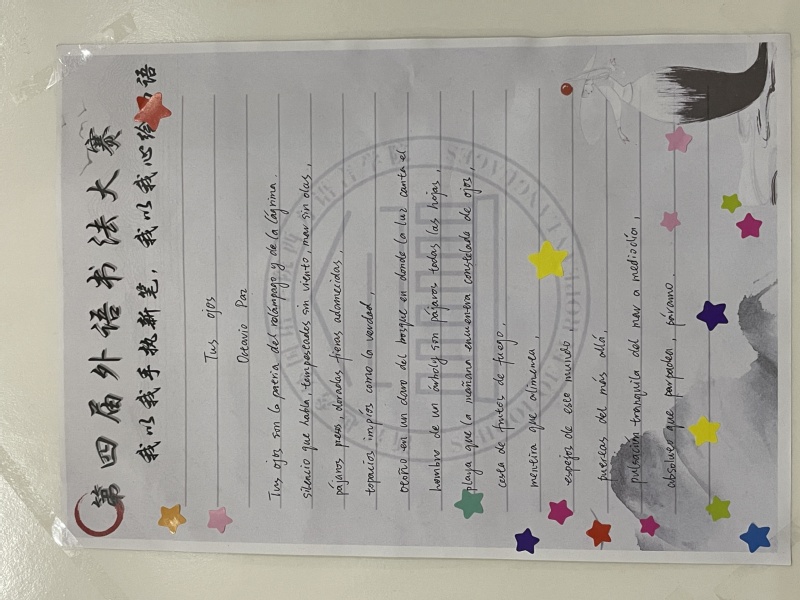 第四届外语书法大赛
我以我手执新笔，我以我心绘 语
Tus ojos
Octavio Paz
Tus ojos son la patria del relámpago y de la lágrima.
silencio que habla, tempestades sin viento, mar sin olas,
pájaros presos, doradas fieras adormecidas,
topacios impíos como la verdad,
otoño en un claro del bosque en donde la luz canta el
hombro de un árbol y son pájaros todas las hojas,
playa que la mañana encuentra constelada de ojos,
cesta de frutos de fuego,
mentira que alimenta,
espejos de este mundo,
puertas del más allá,
pulsación tranquila del mar a mediodía,
absoluto que parpadea, páramo.